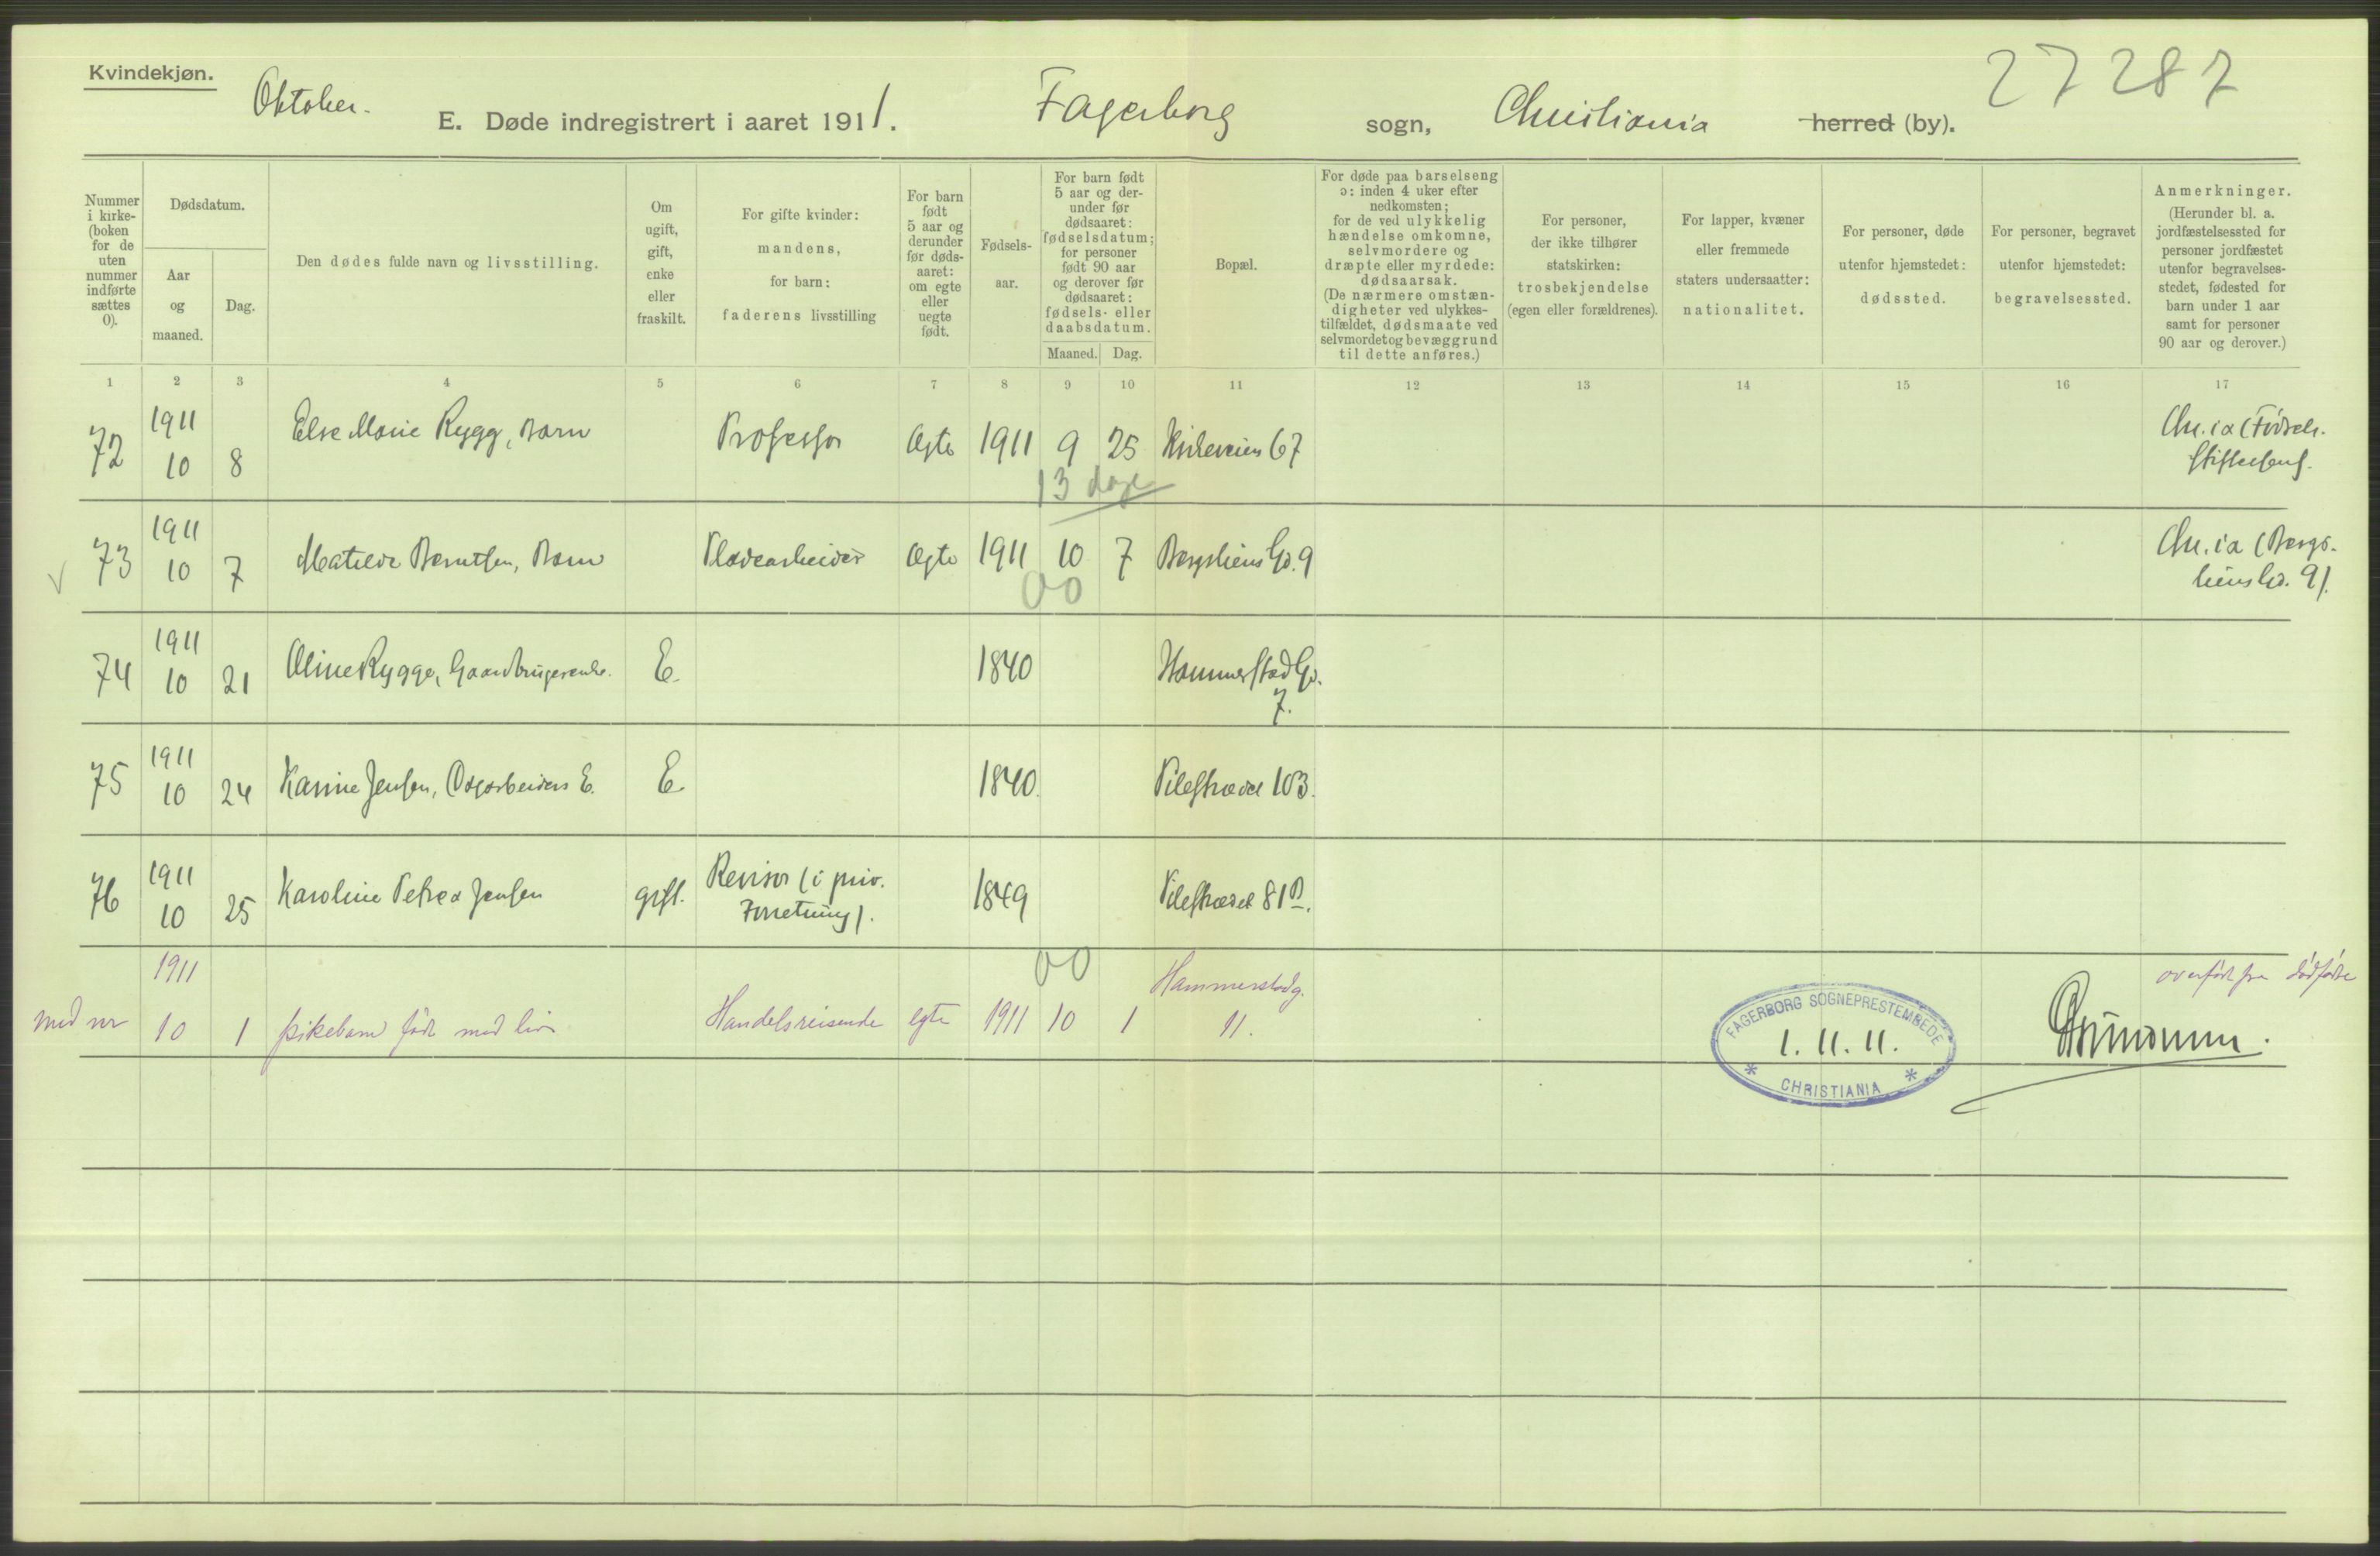 Kvindekjøn.
Oktober.
E. Døde indregistrert i aaret 1911.
Fagerborg sogn, Christiania herred (by).
27 287
Nummer i kirke- (boken for de uten nummer indførte sættes 0).
Dødsdatum.
Aar og maaned.
Dag.
Den dødes fulde navn og livsstilling.
Om ugift, gift, enke eller fraskilt.
For gifte kvinder: mandens, for barn: faderens livsstilling
For barn født 5 aar og derunder før døds- aaret: om egte eller uegte født.
Fødsels- aar.
For barn født 5 aar og der- under før dødsaaret: fødselsdatum; for personer født 90 aar og derover før dødsaaret: fødsels- eller daabsdatum.
Maaned. Dag.
Bopæl.
For døde paa barselseng ɔ: inden 4 uker efter nedkomsten; for de ved ulykkelig hændelse omkomne, selvmordere og dræpte eller myrdede: dødsaarsak. (De nærmere omstæn- digheter ved ulykkes- tilfældet, dødsmaate ved selvmordet og bevæggrund til dette anføres.)
For personer, der ikke tilhører statskirken: trosbekjendelse (egen eller forældrenes).
For lapper, kvæner eller fremmede staters undersaatter: nationalitet.
For personer, døde utenfor hjemstedet: dødssted.
For personer, begravet utenfor hjemstedet: begravelsessted.
Anmerkninger. (Herunder bl. a. jordfæstelsessted for personer jordfæstet utenfor begravelses- stedet, fødested for barn under 1 aar samt for personer 90 aar og derover.)
1 2 3 4 5 6 7 8 9 10 11 12 13 14 15 16 17
72 1911 10 8 Else Marie Rygg, Barn Professor Ægte 1911 9 25 Kirkeveien 67 Chr.ia (Fødsels-
13 dage stiftelsen).
73 1911 10 7 Matilde Berntsen, Barn Ægte 1911 10 7 Bergsliens Gd. 9 Chr.ia (Bergs-
00 liens Gd. 9).
74 1911 10 21 Oline Rygge, Gaardbrugerenke. E. 1840 Hammerstad Gd.
7.
75 1911 10 24 Karine Jensen, Dagarbeiders E. E. 1840. Pilestrædet 103.
76 1911 10 25 Karoline Petrea Jensen gift. Revisor (i priv. 1849 Pilestrædet 81B.
Forretning).
1911 00 Hammerstadg. overført fra dødfødte
med nr 10 1 pikebarn født med liv Handelsreisende egte 1911 10 1 11.
FAGERBORG SOGNEPRESTEMBEDE
1. 11. 11.
* CHRISTIANIA *